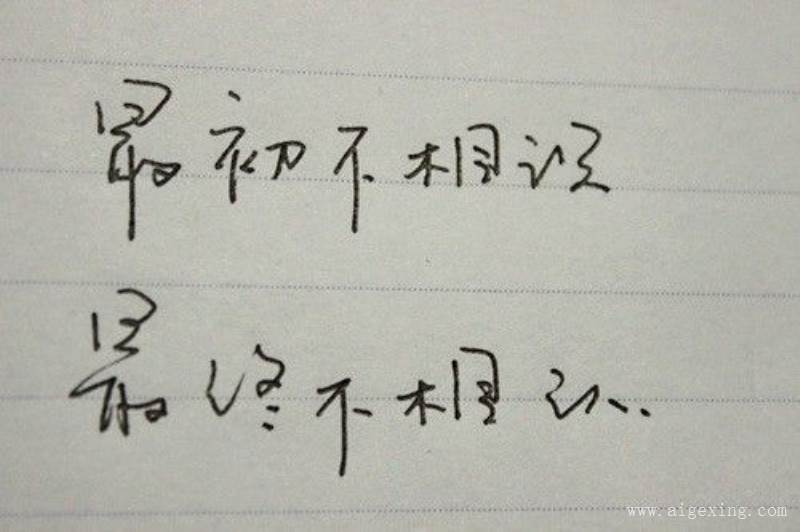 最初不相识
最终不相认
www.aigexing.com